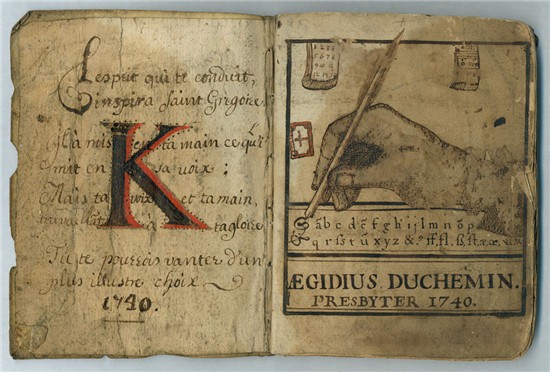 L'esprit qui te conduit,
inspira Saint Gregoire
Il a mis en ta main ce qu'il
mit en sa voix :
Mais ta voix et ta main,
travaillant a ta gloire
Tu te pourrois vanter d'un
plus illustre choix
1740.
K
a b c d e f g h i j l m n o p
q r s s t u x y z & ff, fl,
ÆGIDIUS DUCHEMIN.
PRESBYTER 1740.